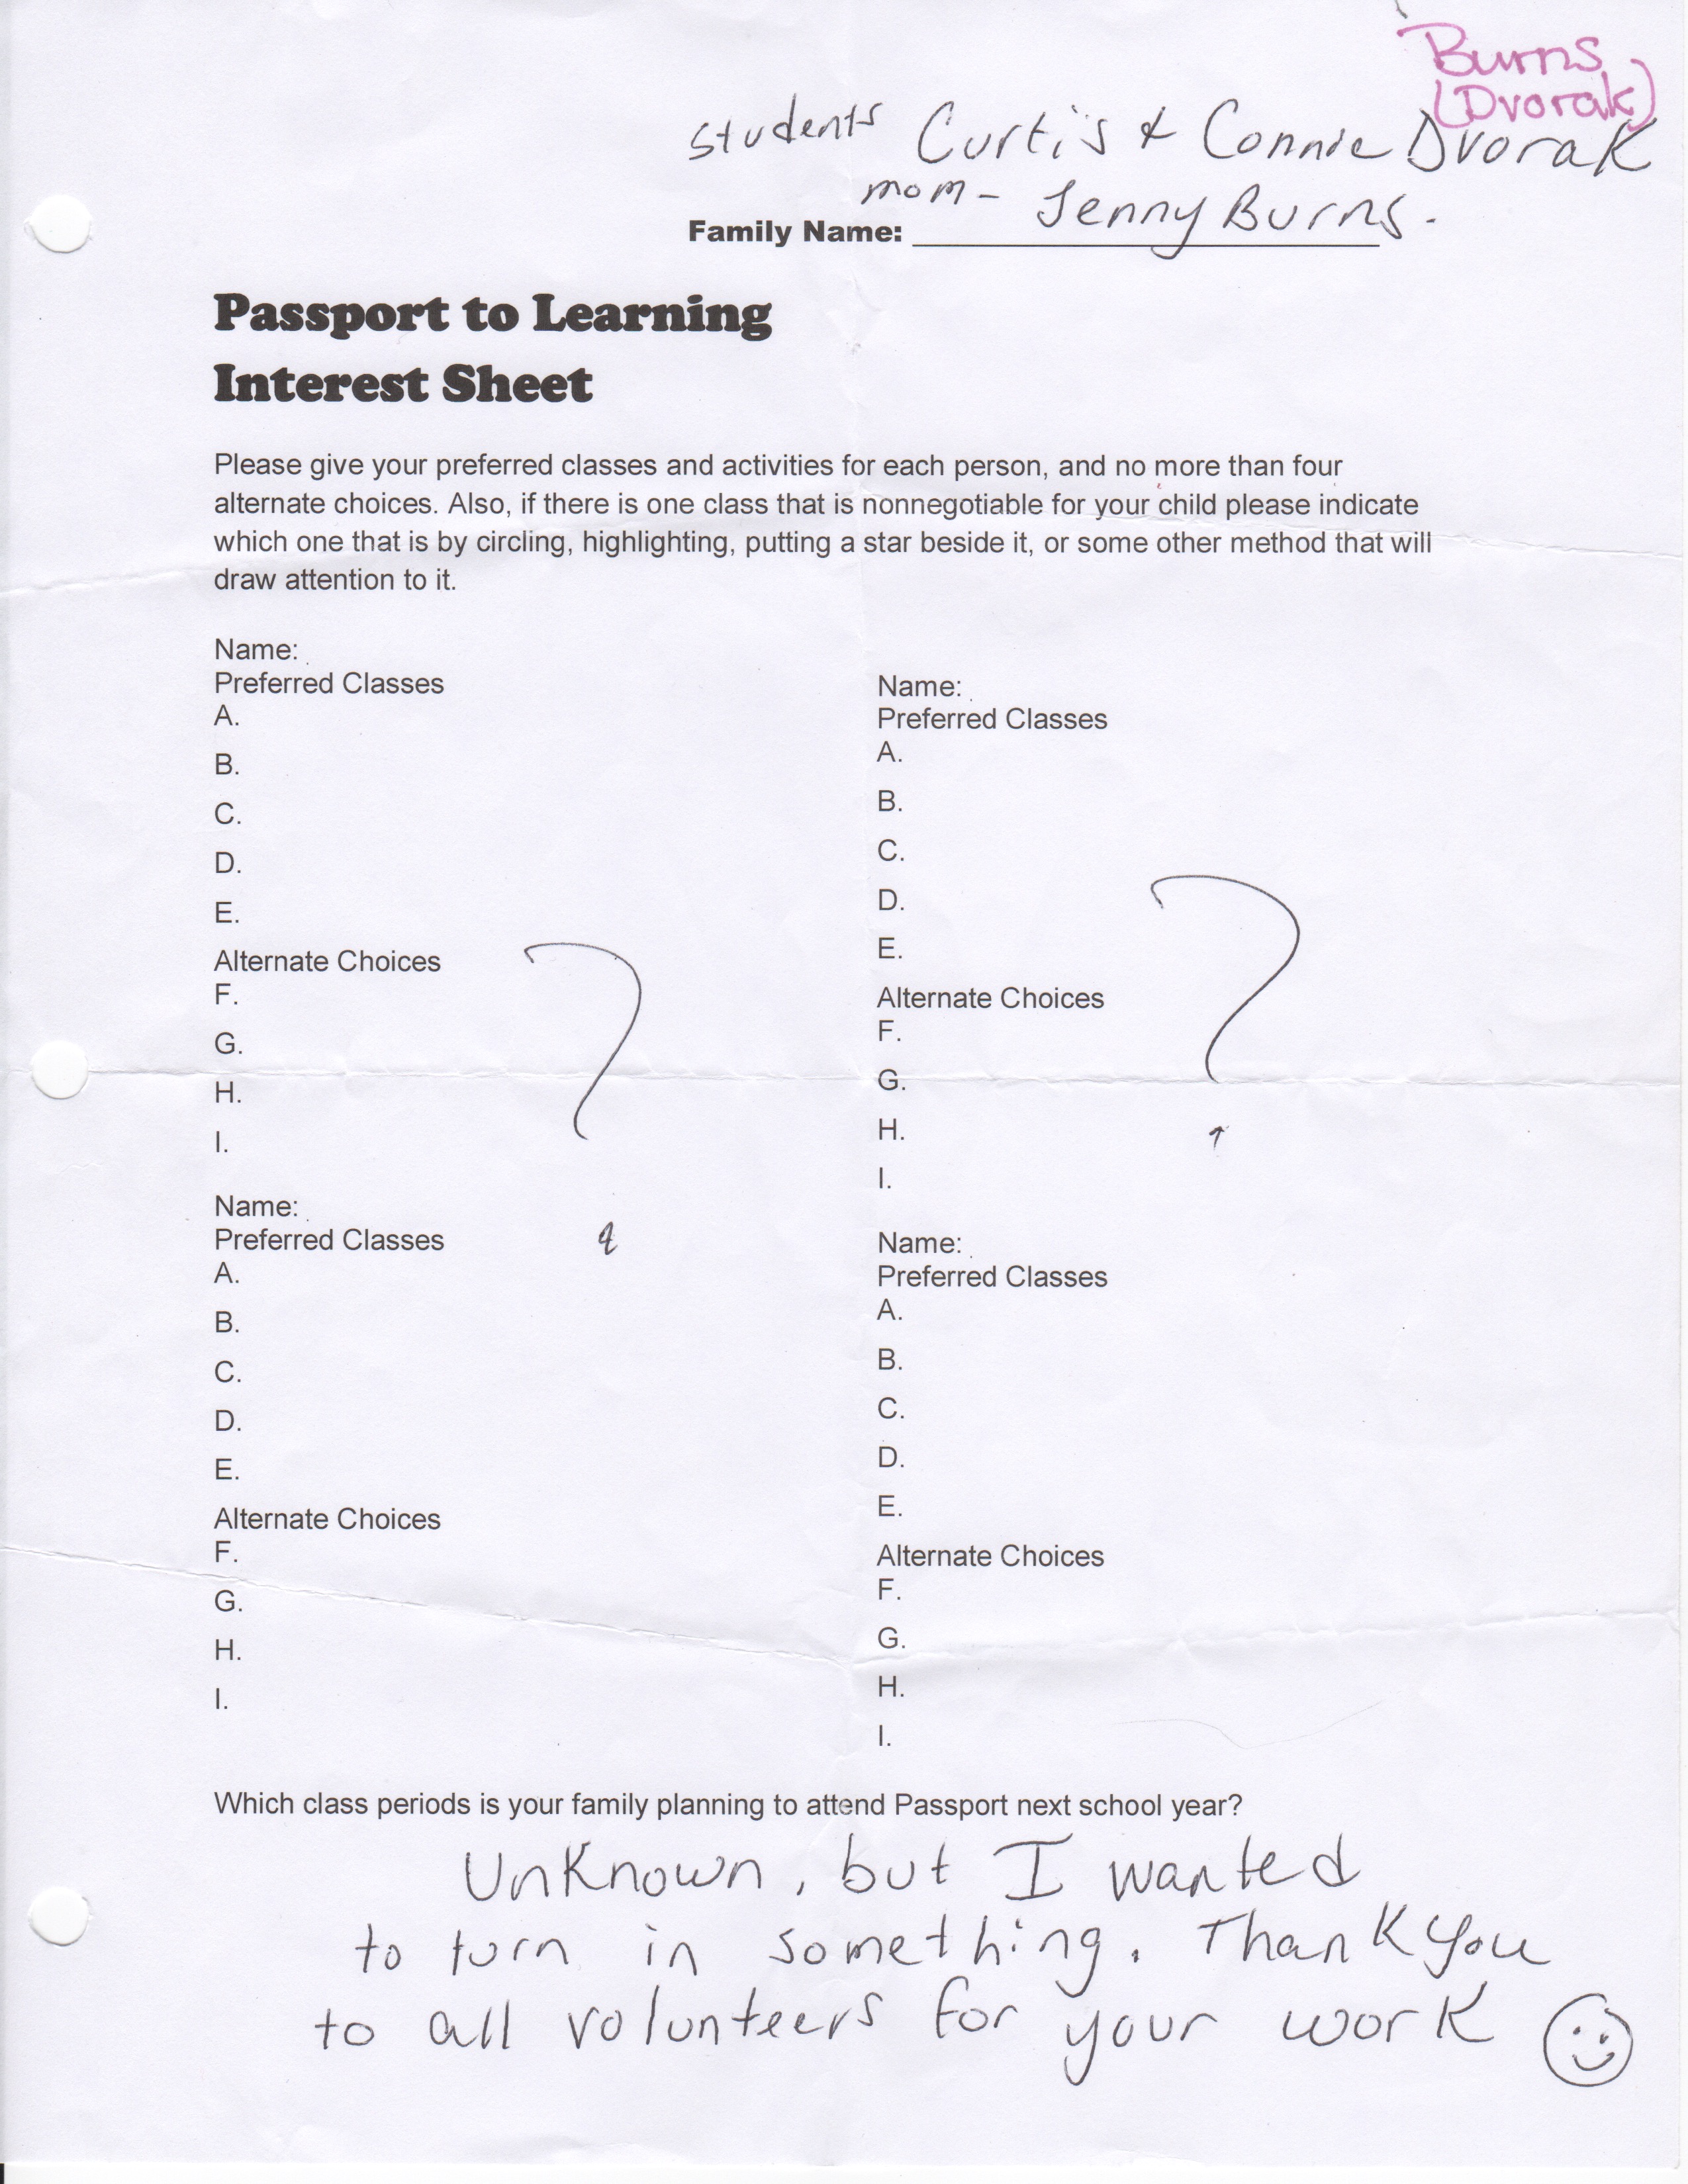 Burns
(Dvorak)
students Curtis & Connie Dvorak
mom - Jenny Burns.
Family Name:
Passport to Learning
Interest Sheet
Please give your preferred classes and activities for each person, and no more than four
alternate choices. Also, if there is one class that is nonnegotiable for your child please indicate
which one that is by circling, highlighting, putting a star beside it, or some other method that will
draw attention to it.
Name:
Preferred Classes
A.
B.
C.
D.
E.
Alternate Choices
F.
G.
H.
I.
?
Name:
Preferred Classes
A.
B.
C.
D.
E.
Alternate Choices
F.
G.
H.
I.
Name:
Preferred Classes
A.
B.
C.
D.
E.
Alternate Choices
F.
G.
H.
I.
?
Name:
Preferred Classes
A.
B.
C.
D.
E.
Alternate Choices
F.
G.
H.
I.
Which class periods is your family planning to attend Passport next school year?
Unknown, but I wanted
to turn in something. Thank you
to all volunteers for your work